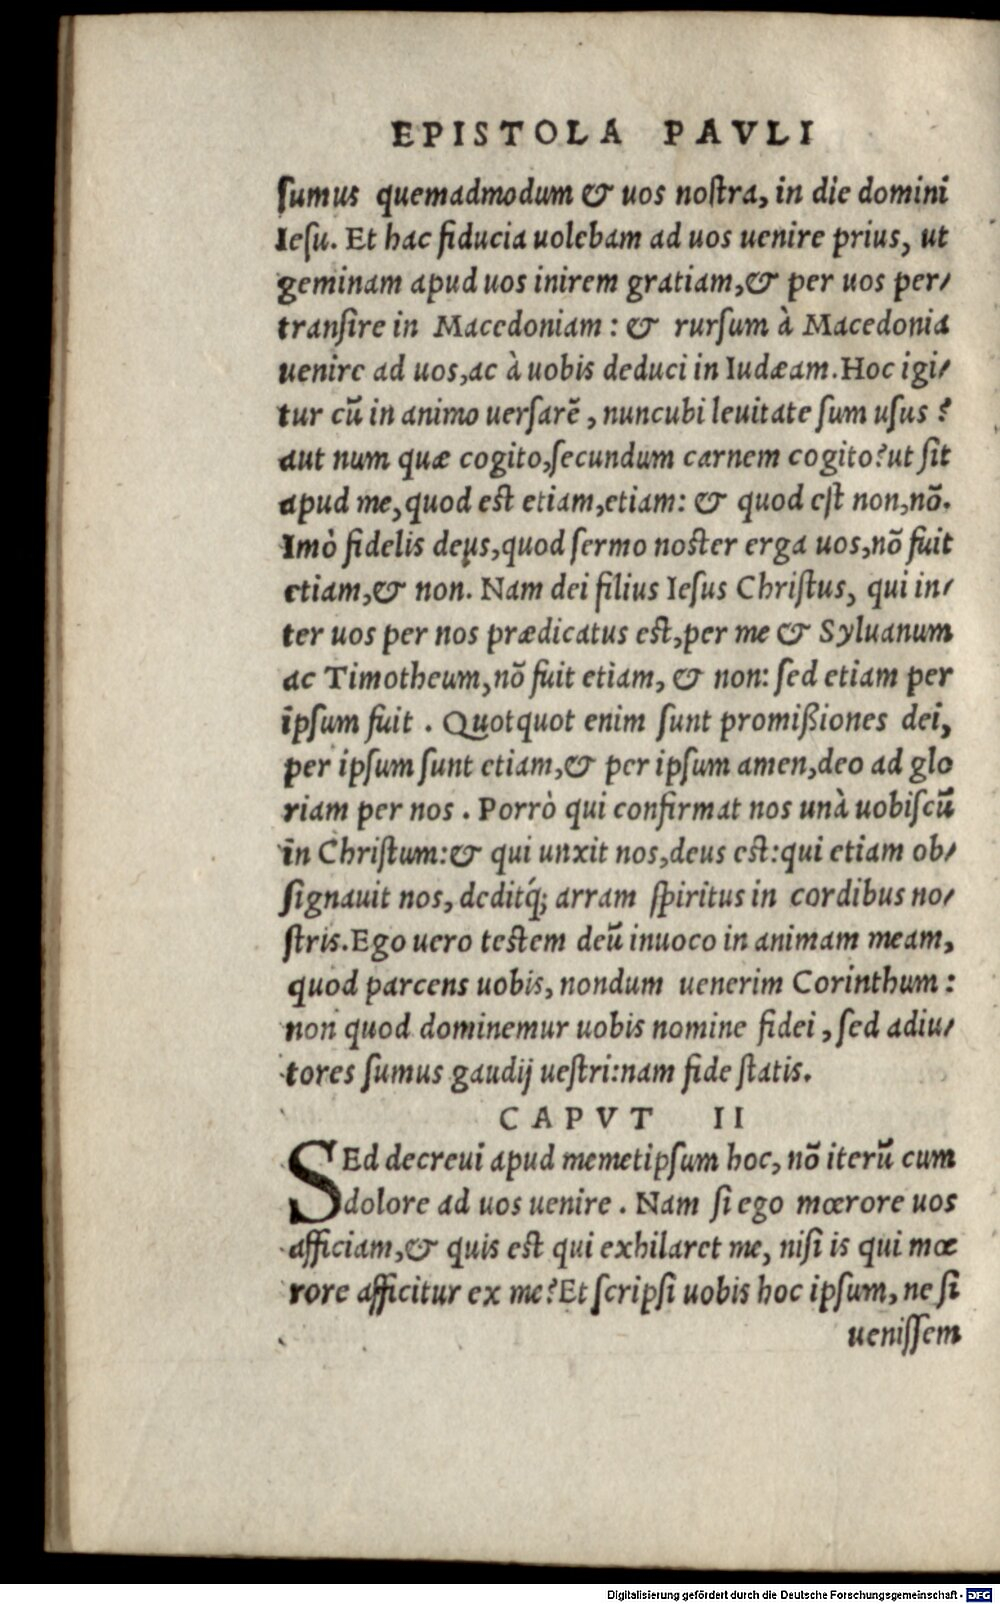 EPISTOLA PAVLI
ſumus quemadmodum & uos noſtra, in die domini
Ieſu. Et hac fiducia uolebam ad uos uenire prius, ut
geminam apud uos inirem gratiam,& per uos per/
tranſire in Macedoniam : & rurſum à Macedonia
uenire ad uos,ac à uobis deduci in Iudæam.Hoc igi/
tur cū in animo uerſarē , nuncubi leuitate ſum uſus ?
aut num quæ cogito,ſecundum carnem cogito?ut ſit
apud me,quod eſt etiam,etiam: & quod eſt non,nō.
Imò fidelis deus,quod ſermo noſter erga uos,nō fuit
etiam,& non. Nam dei filius Ieſus Chriſtus, qui in/
ter uos per nos prædicatus eſt,per me & Syluanum
ac Timotheum,nō fuit etiam, & non: ſed etiam per
ipſum fuit . Quotquot enim ſunt promißiones dei,
per ipſum ſunt etiam,& per ipſum amen,deo ad glo
riam per nos . Porrò qui confirmat nos unà uobiſcū
in Chriſtum:& qui unxit nos,deus eſt:qui etiam ob/
ſignauit nos, deditq́; arram ſpiritus in cordibus no/
ſtris.Ego uero teſtem deū inuoco in animam meam,
quod parcens uobis, nondum uenerim Corinthum :
non quod dominemur uobis nomine fidei , ſed adiu/
tores ſumus gaudij ueſtri:nam fide ſtatis.
CAPVT II
SEd decreui apud memetipſum hoc, nō iterū cum
dolore ad uos uenire . Nam ſi ego mœrore uos
afficiam,& quis eſt qui exhilaret me, niſi is qui mœ
rore afficitur ex me?Et ſcripſi uobis hoc ipſum, ne ſi
ueniſſem
Digitalisierung gefördert durch die Deutsche Forschungsgemeinschaft - DFG